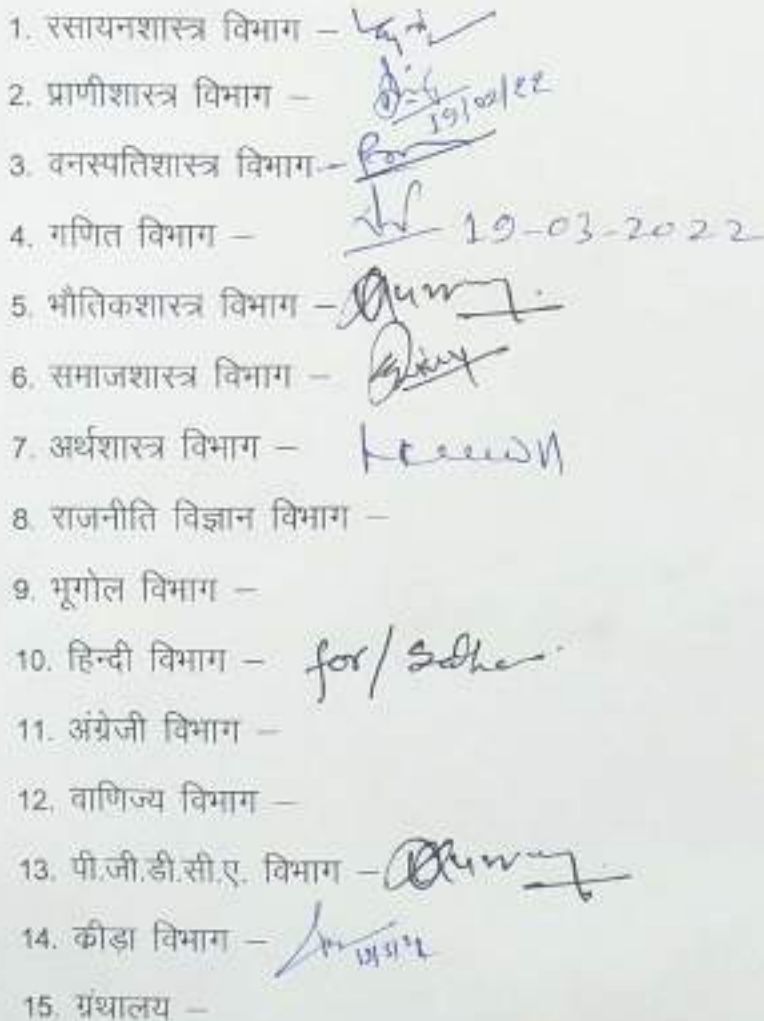 1. रसायनशास्त्र विभाग –
2. प्राणीशास्त्र विभाग –
19/03/22
3. वनस्पतिशास्त्र विभाग –
4. गणित विभाग – 19-03-2022
5. भौतिकशास्त्र विभाग –
6. समाजशास्त्र विभाग –
7. अर्थशास्त्र विभाग –
8. राजनीति विज्ञान विभाग –
9. भूगोल विभाग –
10. हिन्दी विभाग – for/
11. अंग्रेजी विभाग –
12. वाणिज्य विभाग –
13. पी.जी.डी.सी.ए. विभाग –
14. कीड़ा विभाग –
15. ग्रंथालय –